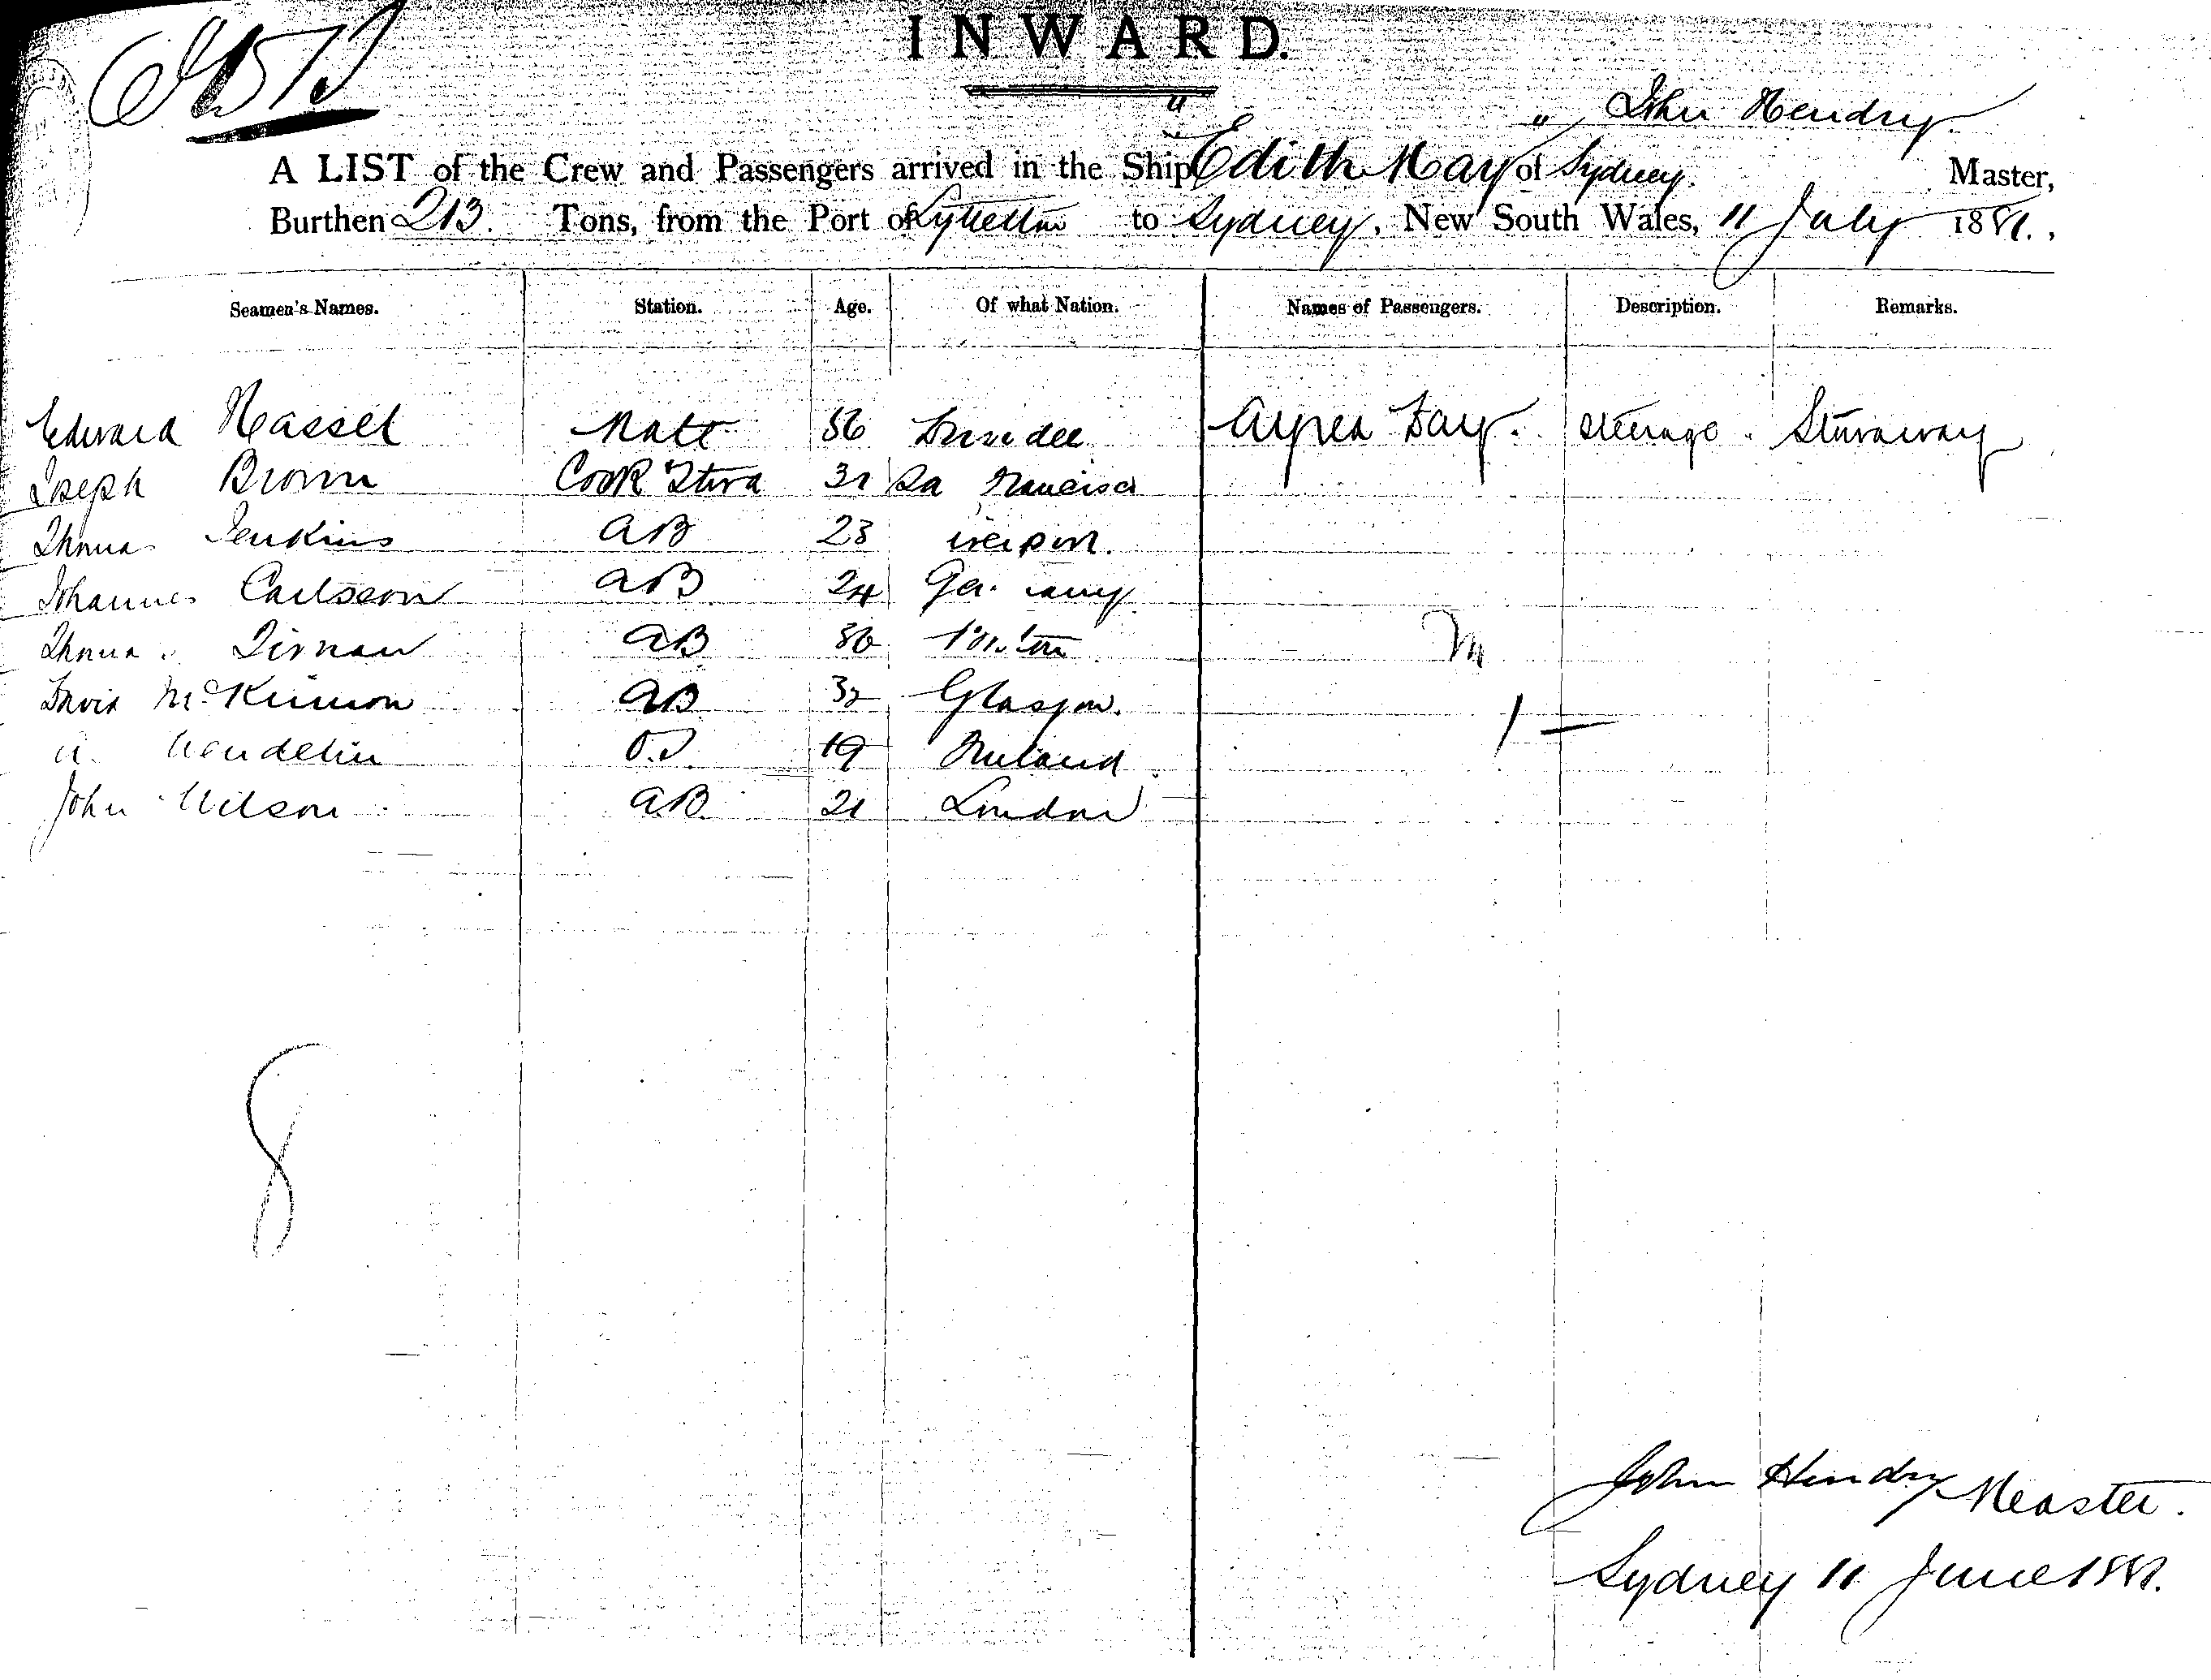 INWARD.
John Hendry
A LIST of the Crew and Passengers arrived in the Ship "Edith May" of Sydney. Master,
Burthen 213. Tons, from the Port of Lyttelton to Sydney, New South Wales, 11 July 1881.,
Seamen's Names. Station. Age. Of what Nation. Names of Passengers. Description. Remarks.
Edward Hassel Mate 36 Dundee Alfred Day. Steerage. Stowaway
Joseph Brown Cook & Stwd 31 Sa Francisco
Thomas Jenkins AB 23
Johannes Carlsson AB 24 Germany
Thomas Tirnan AB 30
David McKinnon AB 32 Glasgow.
A. Wendelin O.S. 19 Finland.
John Wilson AB 21 London
M
1 —
8
John Hendry Master.
Sydney 11 June 1881.